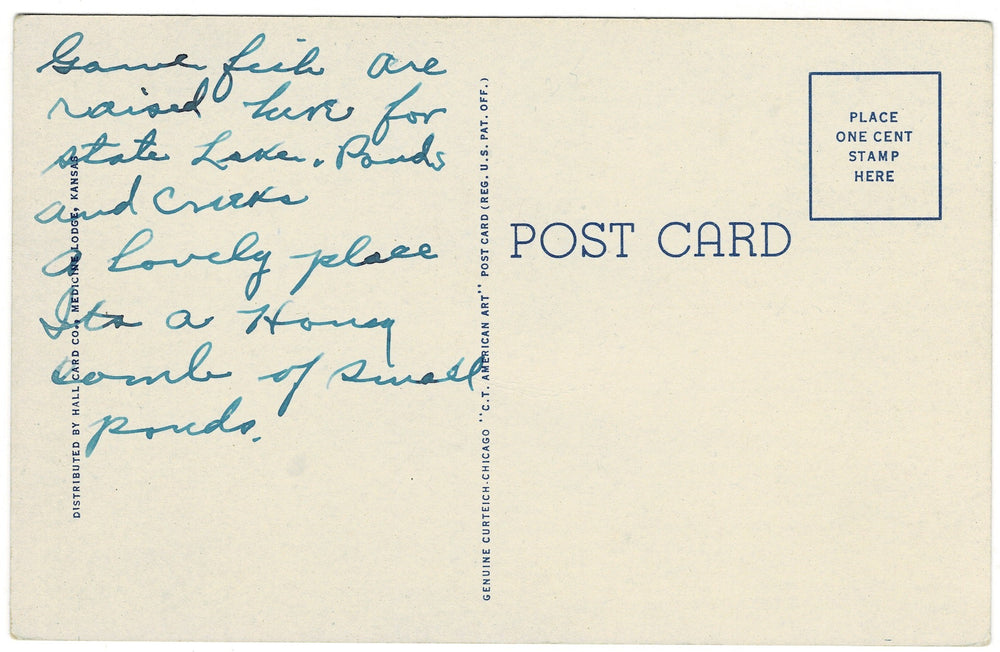 Game fish are
raised here for
state Lakes. Ponds
and Creeks
a lovely place
Its a Honey
comb of small
ponds.
DISTRIBUTED BY HALL CARD CO., MEDICINE LODGE, KANSAS
GENUINE CURTEICH-CHICAGO "C.T. AMERICAN ART" POST CARD (REG. U.S. PAT. OFF.)
POST CARD
PLACE
ONE CENT
STAMP
HERE